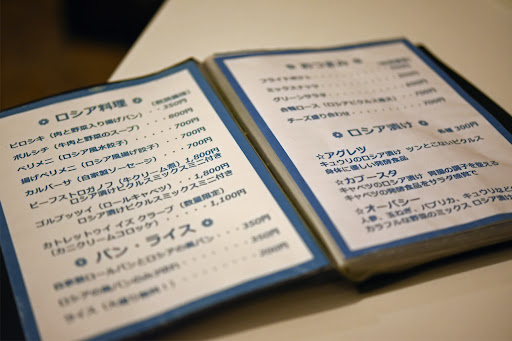 ロシア料理
ピロシキ（肉と野菜入り揚げパン） 350円
ボルシチ（牛肉と野菜のスープ） 800円
ペリメニ（ロシア風水餃子） 700円
揚げペリメニ（ロシア風揚げ餃子） 700円
カルバーサ（自家製ソーセージ） 700円
ビーフストロガノフ（牛クリーム煮）1,800円
ロシア漬けピクルスミックスミニ付き
ゴルブッツイ（ロールキャベツ） 1,800円
ロシア漬けピクルスミックスミニ付き
カトレットゥイ イズ クラーブ（数量限定）
（カニクリームコロッケ） 1,100円
パン・ライス
350円
350円
おつまみ
フライドポテト
ミックスナッツ
グリーンサラダ
合鴨ロース（ロシアピクルス添え） 800円
チーズ盛り合わせ
ロシア漬け
各種 300円
☆アグレツ
キュウリのロシア漬け ツンとこないピクルス
身体に優しい発酵食品
☆カプースタ
キャベツのロシア漬け 胃腸の調子を整える
キャベツの発酵食品をサラダ感覚で
☆オーバシー
人参、玉ねぎ、パプリカ、キュウリなどの
カラフルな野菜のミックス ロシア漬け